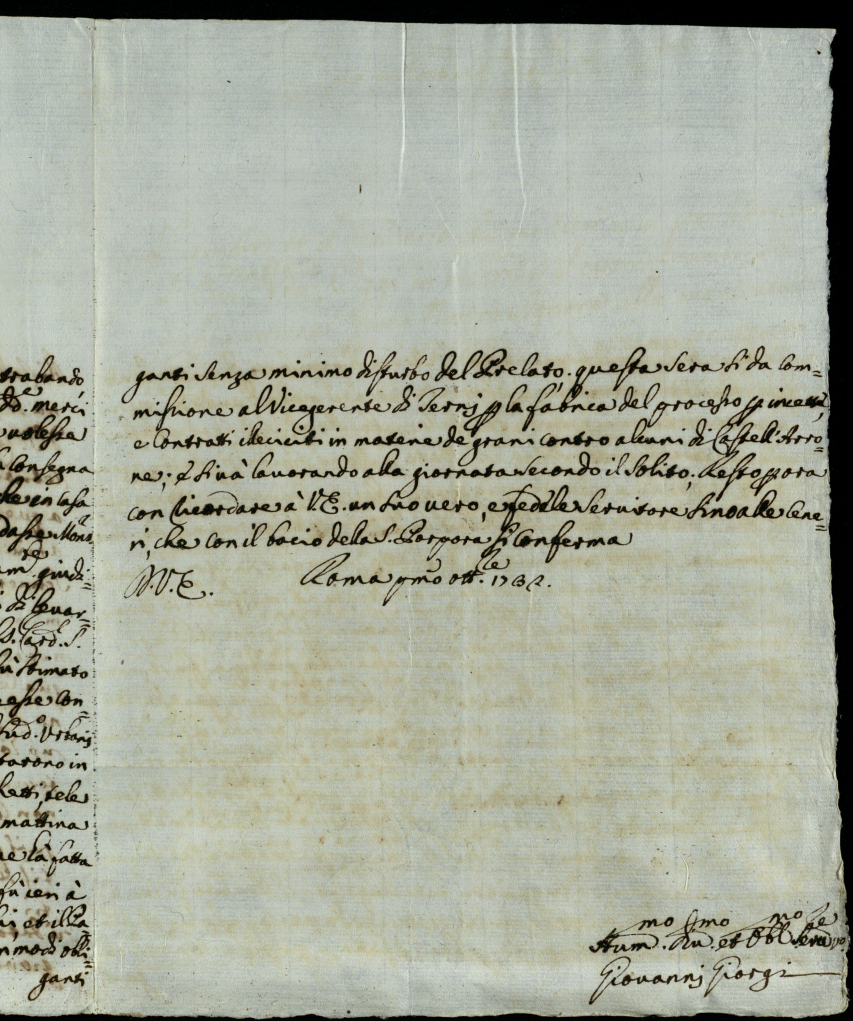 trabando
merci
volesse
Consegna
che in Casa
dasse Mons.
giudi=
di levar=
Card. S.
stimato
esse con=
Urbani
tarono in
tele
mattina
la fatta
fù ieri à
modi obli=
ganti
ganti senza minimo disturbo del Prelato. questa sera si da Com=
missione al Vicegerente di Ternj p la fabrica del processo p incette,
e Contrati illeciti in materie de grani contro alcuni di Castell'Arro=
ne; e si và lavorando alla giornata secondo il Solito; Resto p ora
con ricordare à V.E. un suo vero, e fedele Servitore sino alle Cene=
ri, che con il bacio della S. Porpora si conferma
D.V.E. Roma pmo ott.re 1732.
Hum.mo Du.mo et Obl.mo Serv.re
Giovannj Giorgi